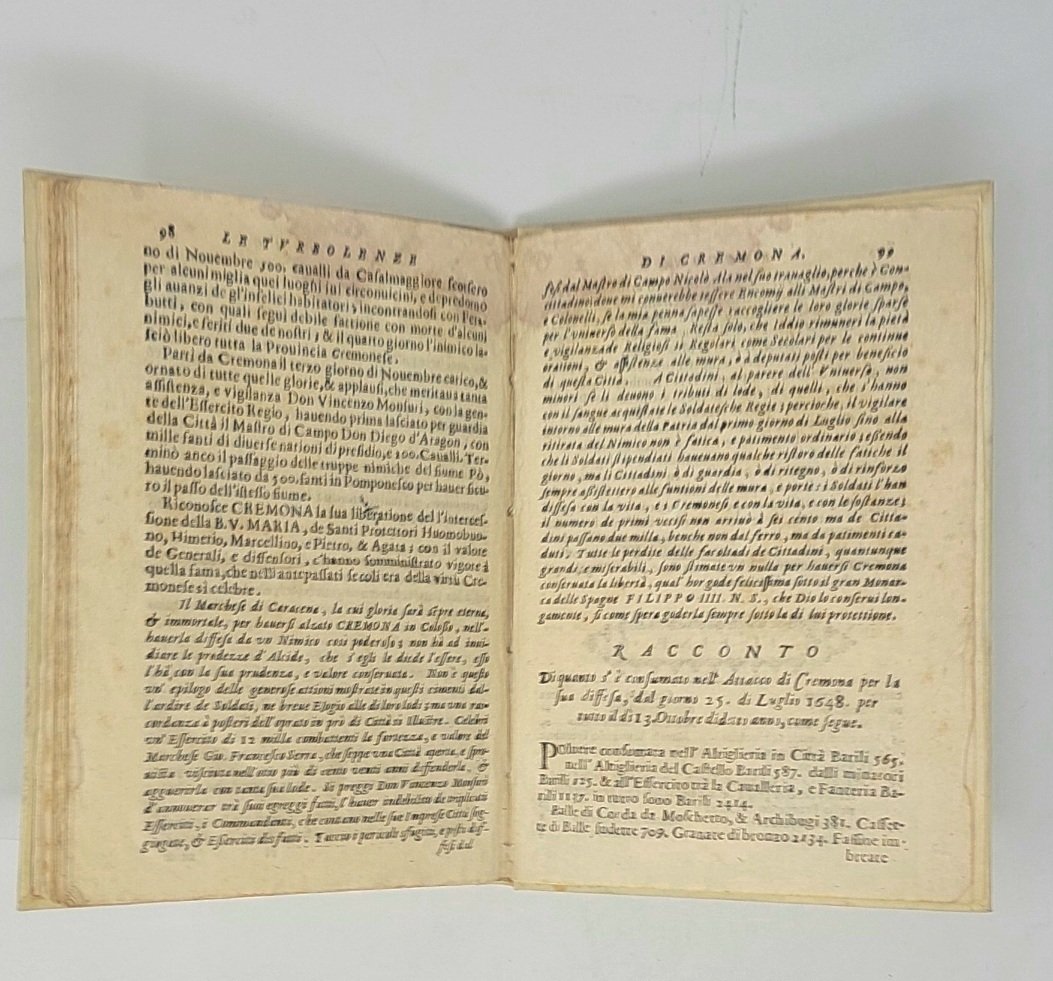 98 LE TVRBOLENZE
no di Nouembre 500. caualli da Casalmaggiore scorsero
per alcuni miglia quei luoghi lui circonuicini, e depredorno
gli auanzi de gl'infelici habitatori; incontrandosi con l'era-
butti, con quali seguì debile fattione con morte d'alcuni
nimici, e feriti due de nostri; & il quarto giorno l'inimico la-
sciò libero tutta la Prouincia Cremonese.
Partì da Cremona il terzo giorno di Nouembre carico, &
ornato di tutte quelle glorie, & applausi, che meritaua tanta
assistenza, e vigilanza Don Vincenzo Monsuri, con la gen-
te dell'Essercito Regio, hauendo prima lasciato per guardia
della Città il Mastro di Campo Don Diego d'Aragon, con
mille fanti di diuerse nationi di presidio, e 300. Caualli. Ter-
minò anco il passaggio delle truppe nimiche del fiume Pò,
hauendo lasciato da 500. fanti in Pomponesco per hauer sicu-
ro il passo dell'istesso fiume.
Riconosce CREMONA la sua liberatione del l'interces-
sione della B. V. MARIA, de Santi Protettori Huomobuo-
no, Himerio, Marcellino, e Pietro, & Agata; con il valore
de Generali, e diffensori, c'hanno somministrato vigore à
quella fama, che nelli antepassati secoli era della virtù Cre-
monese sì celebre.
Il Marchese di Caracena, la cui gloria sarà sẽpre eterna,
& immortale, per hauersi alzato CREMONA in Colosso, nell'-
hauerla diffesa da vn Nimico così poderoso; non hà ad inui-
diare le prodezze d'Alcide, che s'egli le diede l'essere, esso
l'hà con la sua prudenza, e valore conseruata. Non è questo
vn' epilogo delle generose attioni mostrate in questi cimenti dal-
l'ardire de Soldati, ne breue Elogio alle di loro lodi; ma vna rac-
cordanza à posteri dell'oprato in prò di Città sì Illustre. Celebri
vn' Essercito di 12 mila combattenti la fortezza, e valore del
Marchese Gio. Francesco Serra, che seppe vna Città aperta, e spro-
uista vescouza nell'otio più di cento venti anni diffenderla, &
agguerirla con tanta sua lode. Si preggi Don Vincenzo Monsuri
d'annouerar trà suoi egreggi fatti, l'hauer indebilito de triplicati
Esserciti, i Commandanti, che contano nelle sue Imprese Città sog-
giogate, & Esserciti disfatti. Taccio i pericoli sfuggiti, e posti dif-
fesi dal
DI CREMONA. 99
fesi dal Mastro di Campo Nicolò Ala nel suo trauaglio, perche è Con-
cittadino; doue mi conuerebbe tessere Encomij alli Mastri di Campo,
e Colonelli, se la mia penna sapesse raccogliere le loro glorie sparse
per l'vniuerso della fama. Resta solo, che Iddio rimuneri la pietà
e vigilanza de Religiosi sì Regolari come Secolari per le continue
orationi, & assistenze alle mura, ò à deputati posti per beneficio
di questa Città. A Cittadini, al parere dell' Vniuerso, non
minori se li deuono i tributi di lode, di quelli, che s'hanno
con il sangue acquistate le Soldatesche Regie; percioche, il vigilare
intorno alle mura della Patria dal primo giorno di Luglio sino alla
ritirata del Nimico non è fatica, e patimento ordinario; essendo
che li Soldati stipendiati haueuano qualche ristoro delle fatiche il
giorno, ma li Cittadini ò di guardia, ò di ritegno, ò di rinforzo
sempre assistettero alle funtioni delle mura, e porte: i Soldati l'han
diffesa con la vita, e i Cremonesi e con la vita, e con le sostanze;
il numero de primi vccisi non arriuò à sei cento ma de Citta-
dini passano due milla, benche non dal ferro, ma da patimenti ca-
duti. Tutte le perdite delle facoltadi de Cittadini, quantunque
grandi, e miserabili, sono stimate vn nulla per hauersi Cremona
conseruata la libertà, qual' hor gode felicissima sotto il gran Monar-
ca delle Spagne FILIPPO IIII. N. S., che Dio lo conserui lon-
gamente, sì come spera goderla sempre sotto la di lui protettione.
RACCONTO
Di quanto s'è consumato nell' Attacco di Cremona per la
sua diffesa, dal giorno 25. di Luglio 1648. per
tutto il dì 13. Ottobre di detto anno, come segue.
Poluere consumata nell' Altiglieria in Città Barili 565.
nell' Altiglieria del Castello Barili 587. dalli minatori
Barili 125. & all' Essercito trà la Caualleria, e Fanteria Ba-
rili 1137. in tutto sono Barili 2414.
Balle di Corda da Moschetto, & Archibugi 381. Casset-
te di Balle sudette 709. Granate di bronzo 2134. Fassine im-
breate